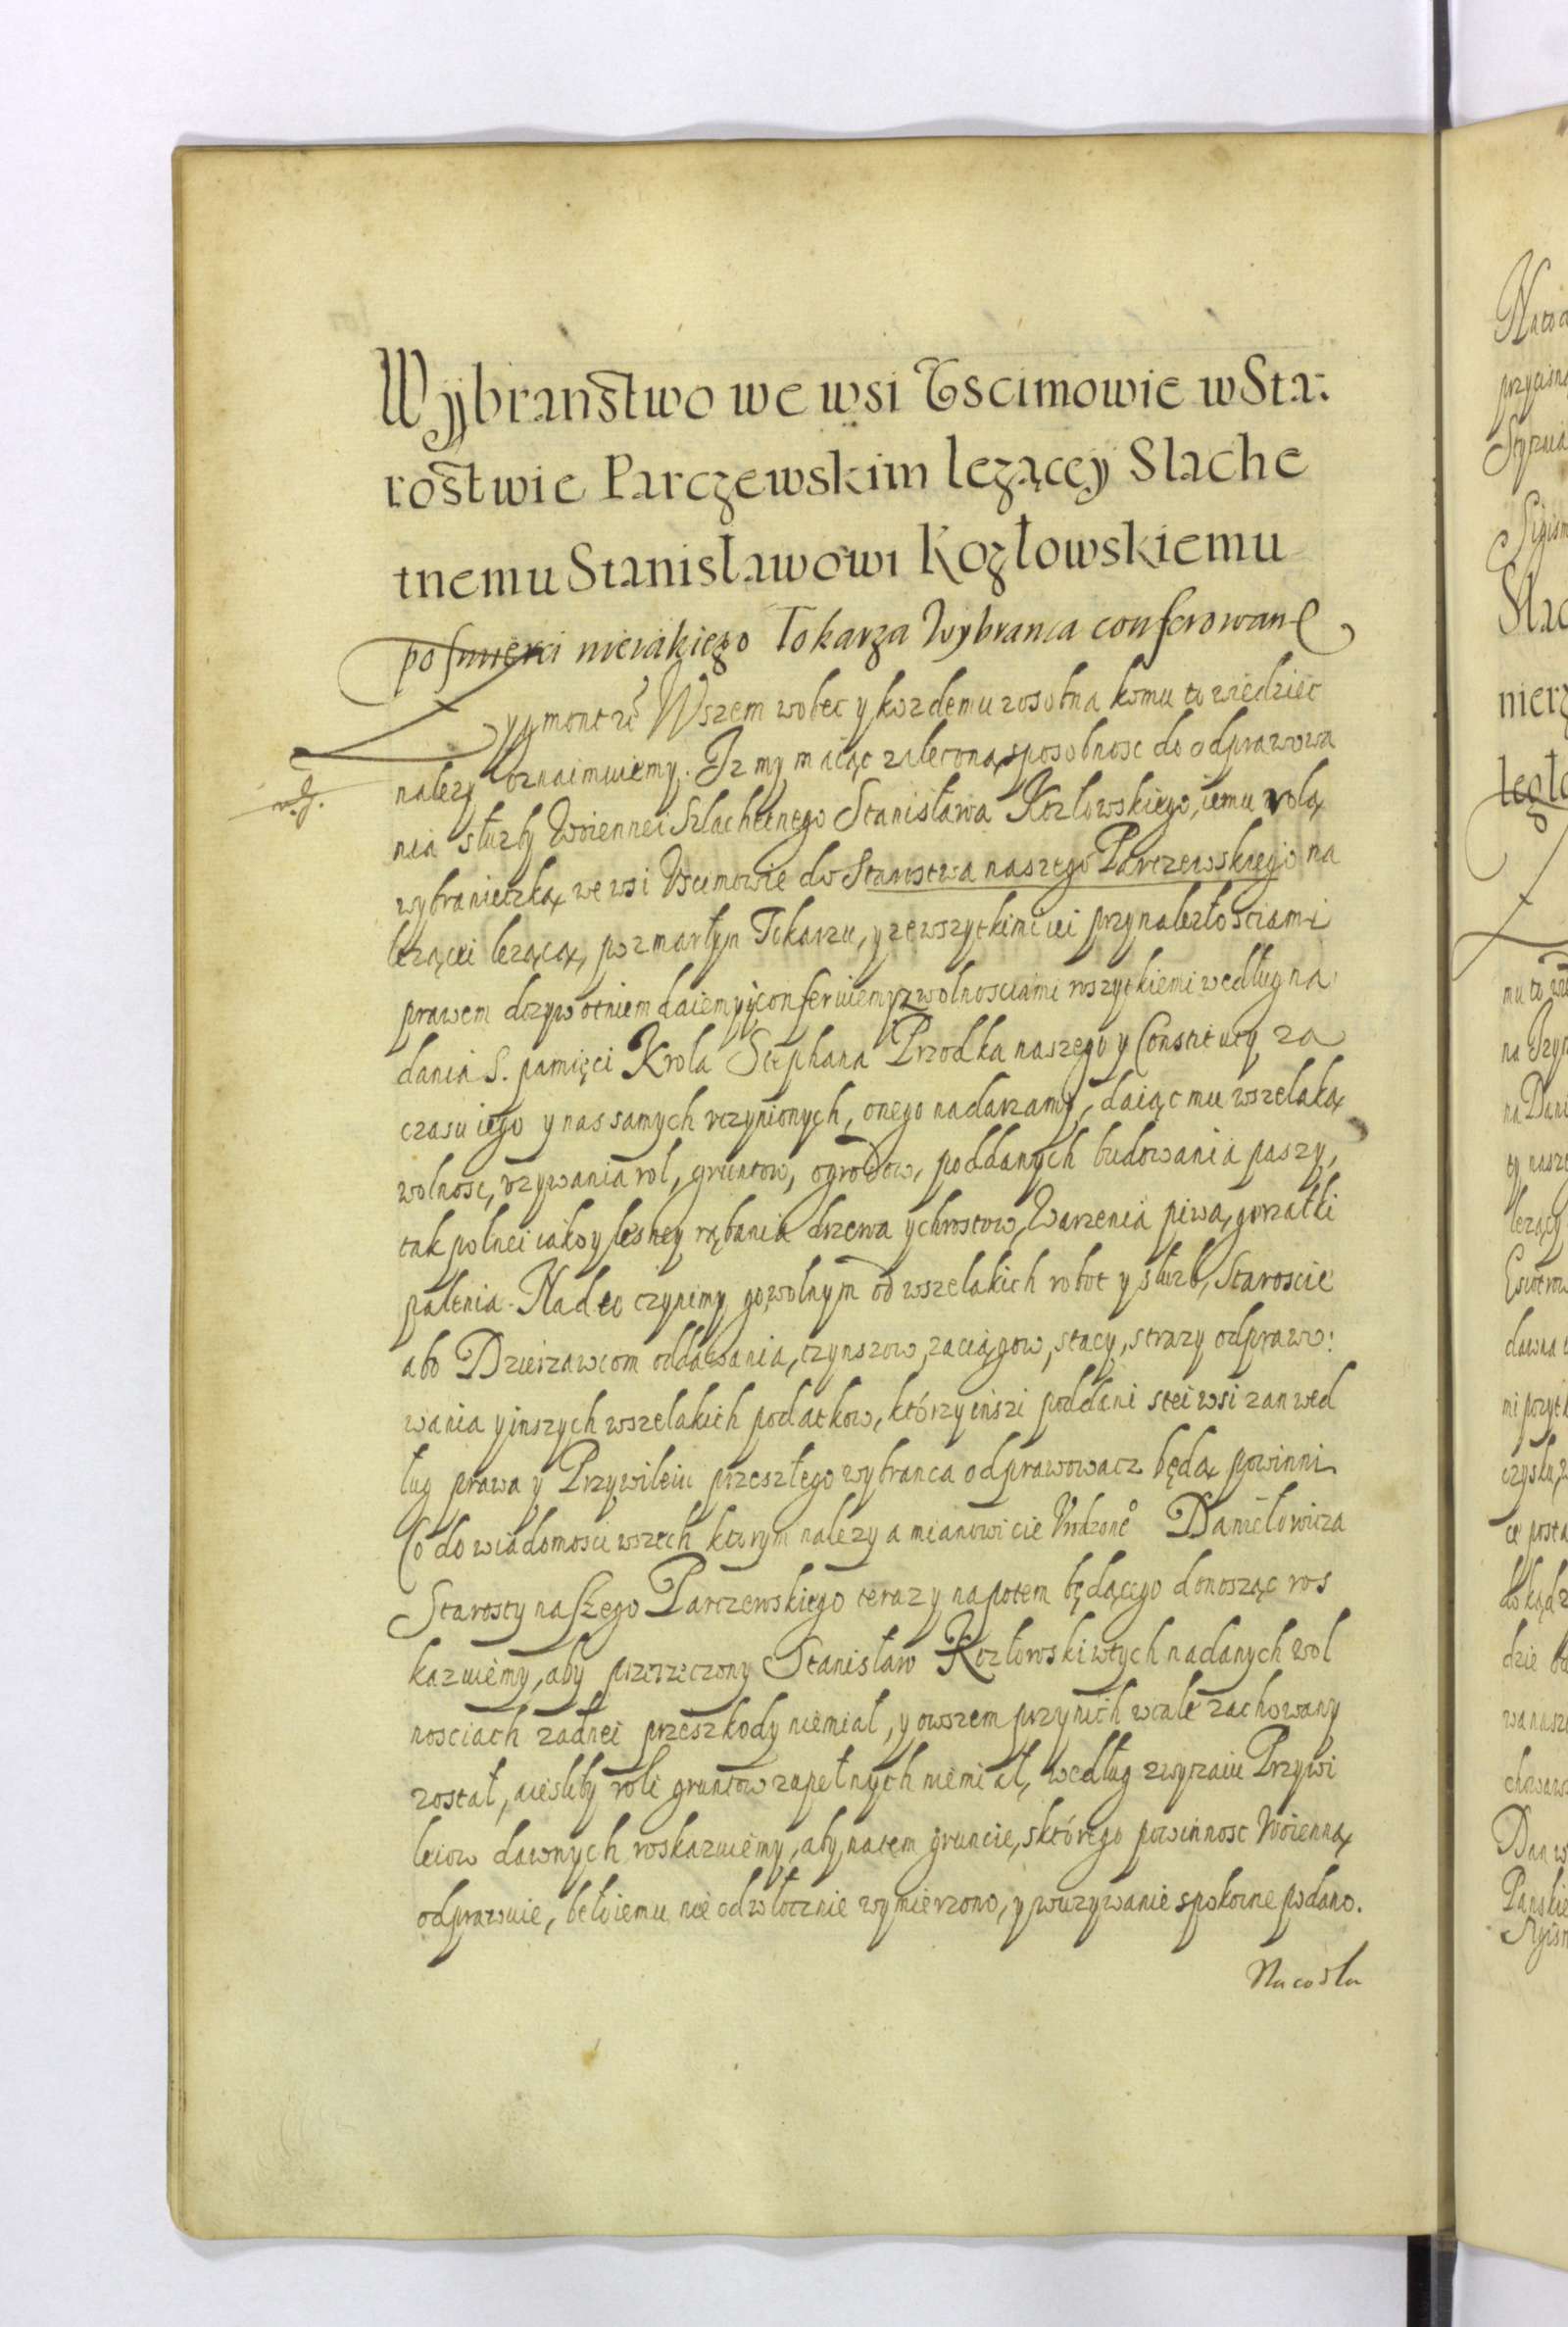 Wybranstwo we wsi Uscimowie w Sta:
rostwie Parczewskim lezącey Slache
tnemu Stanisławowi Kozłowskiemu
po smierci nieiakiego Tokarza Wybranca conferowane
Zygmont rc̃ Wszem wobec y kozdemu zosobna komu to wiedziec
nalezy oznaimuiemy. Iz my maiąc zaleconą sposobnosc do odprawowa
nia słuzby woiennei Szlachetnego Stanisława Kozlowskiego, iemu rolą
wybranieczką we wsi Uscimowie do Starostwa naszego Parczewskiego na
lezącei lezącą, po zmarłym Tokarzu, y ze wszytkimi iei przynalezłosciami
prawem dozywotniem daiemy y conferuiemy z wolnosciami wszytkiemi według na
dania S. pamięci Krola Stephana Przodka naszego y Constitucy za
czasu iego y nas samych uczynionych, onego nadarzamy, daiąc mu wszelaką
wolnosc, uzywania rol, gruntow, ogrodow, poddanych budowania paszy,
tak polnei iako y lesney rąbania drzewa y chrostow, Warzenia piwa, gorzałki
palenia. Nad to czynimy go wolnym od wszelakich robot y słuzb, Staroscie
abo Dzierzawcom oddawania, czynszow, zaciągow, stacy, strazy odpraw:
wania y inszych wszelakich podatkow, którzy inszi poddani s tei wsi zan wed
ług prawa y Przywileiu przeszłego wybranca odprawowacz będą powinni
Co do wiadomosci wszech ktorym nalezy a mianowicie Urodzoneº Daniełowicza
Starosty naszego Parczewskiego teraz y napotem będącego donosząc ros
kazuiemy, aby przerzeczony Stanisław Kozłowski w tych nadanych wol
nosciach zadnei przeszkody niemial, y owszem przy nich wcale zachowany
został, a iesliby roli gruntow zupełnych niemiał, według zwyczaiu Przywi
leiow dawnych roskazuiemy, aby na tem gruncie, s którego powinnosc Woienną
odprawuie, beło iemu nieodwłocznie wymierzono, y w uzywanie spokoine podano.
Na co dla